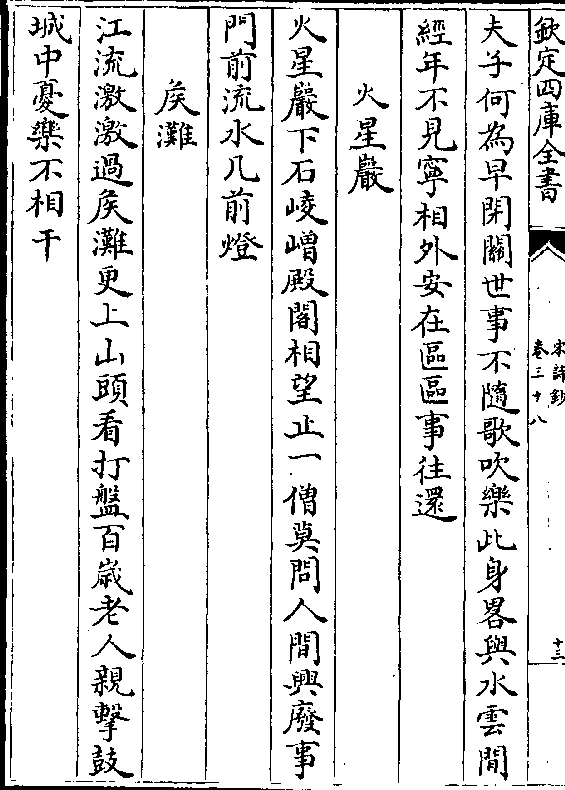 欽定四庫全書
宋詩鈔
卷三十八
十三
夫子何為早閉關世事不隨歌吹樂此身畧與水雲閒
經年不見寧相外安在區區事往還
火星巖
火星巖下石崚嶒殿閣相望止一僧莫問人間興廢事
門前流水几前燈
矦灘
江流激激過矦灘更上山頭看打盤百歲老人親擊鼓
城中憂樂不相干